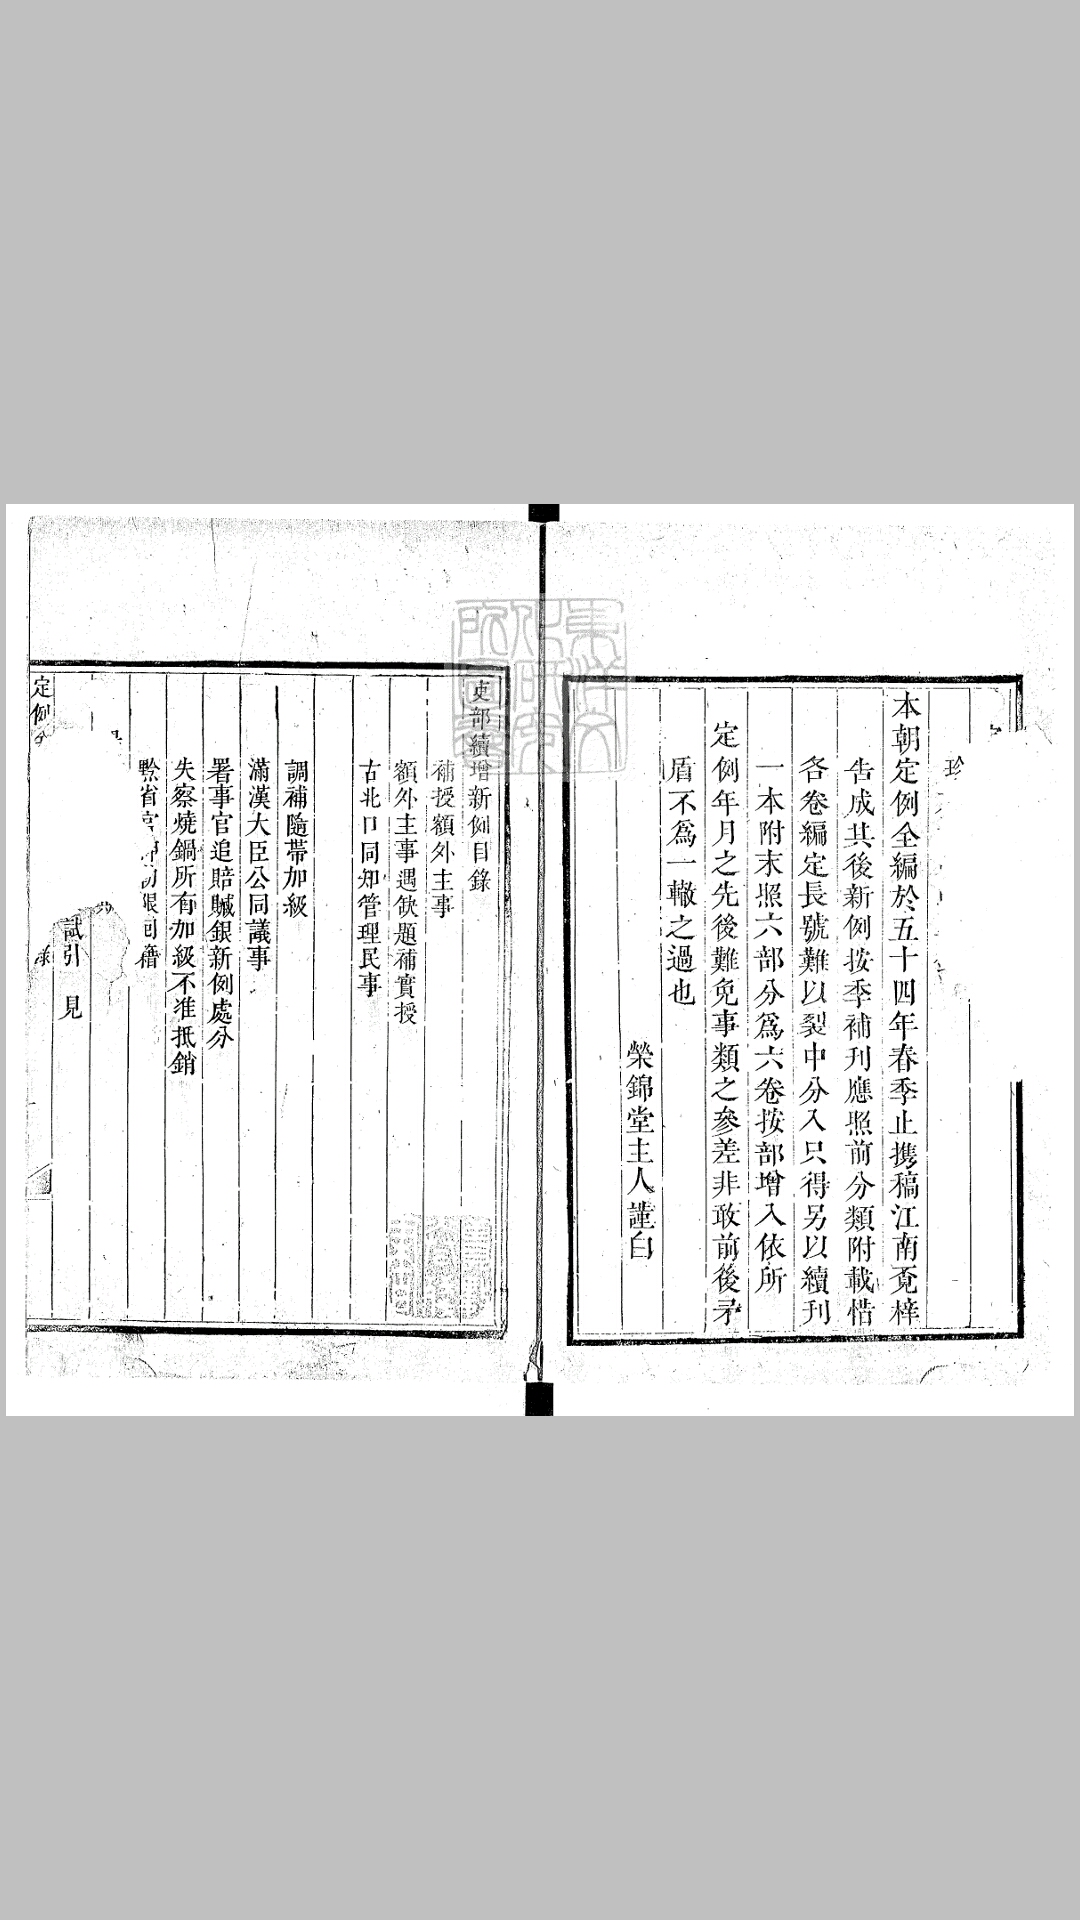 本朝定例全編於五十四年春季止携稿江南覔梓
告成其後新例按季補刊應照前分類附載惜
各卷編定長號難以裂中分入只得另以續刊
一本附末照六部分爲六卷按部增入依所
定例年月之先後難免事類之參差非敢前後矛
盾不爲一轍之過也
榮錦堂主人謹白
吏部續增新例目錄
補授額外主事
額外主事遇缺題補實授
古北口同知管理民事
調補隨帶加級
滿漢大臣公同議事
署事官追賠贓銀新例處分
失察燒鍋所有加級不准抵銷
黔省官限回籍
試引 見
定例
東洋文化研究所圖書